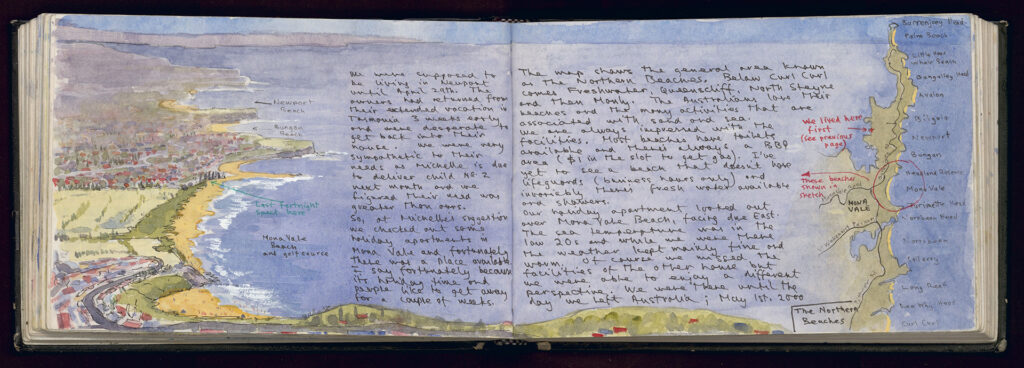 Newport
Beach
Bungan
Beach
Last fortnight
spent here
Mona Vale
Beach
and golf cource
We were supposed to
be living in Newport
until April 29th. The
owners had returned from
their extended vacation in
Tasmania 3 weeks early
and were desperate to
get back into their
house. We were very
sympathetic to their
needs as Michelle is due
to deliver child No 2
next month and we
figured their need was
greater than ours.
So, at Michelle's suggestion
we checked out some
holiday apartments in
Mona Vale and fortunately
there was a place available
I say fortunately because
its holiday time and
people like to get away
for a couple of weeks.
The map shows the general area known
as The Northern Beaches. Below Curl Curl
comes Freshwater, Queenscliff, North Steyne
and then Manly. The Australians love their
beaches and the many activities that are
associated with sand and sea.
We are always impressed with the
facilities. Most beaches have toilets
available and there's always a BBQ
area ($1 in the slot to get gas). I've
yet to see a beach that doesn't have
lifeguards (business hours only) and
invariably there's fresh water available
and showers.
Our holiday apartment looked out
over Mona Vale Beach, facing due East.
The sea temperature was in the
low 20s and while we were there
the weather kept mainly fine and
warm. Of course we missed the
facilities of the other house but
we were able to enjoy a different
perspective. We were there until the
day we left Australia; May 1st. 2000
We lived here
first
(see previous
page)
These beaches
shown in
sketch
Barrenjoey Head
Palm Beach
Little Head
Whale Beach
Bangalley Head
Avalon
Bilgola
Newport
Bungan
Mona Vale
MONA
VALE
Turimetta Head
Narrabeen Head
Narrabeen
Collaroy
Long Reef
Dee Why Head
Curl Curl
The Northern
Beaches